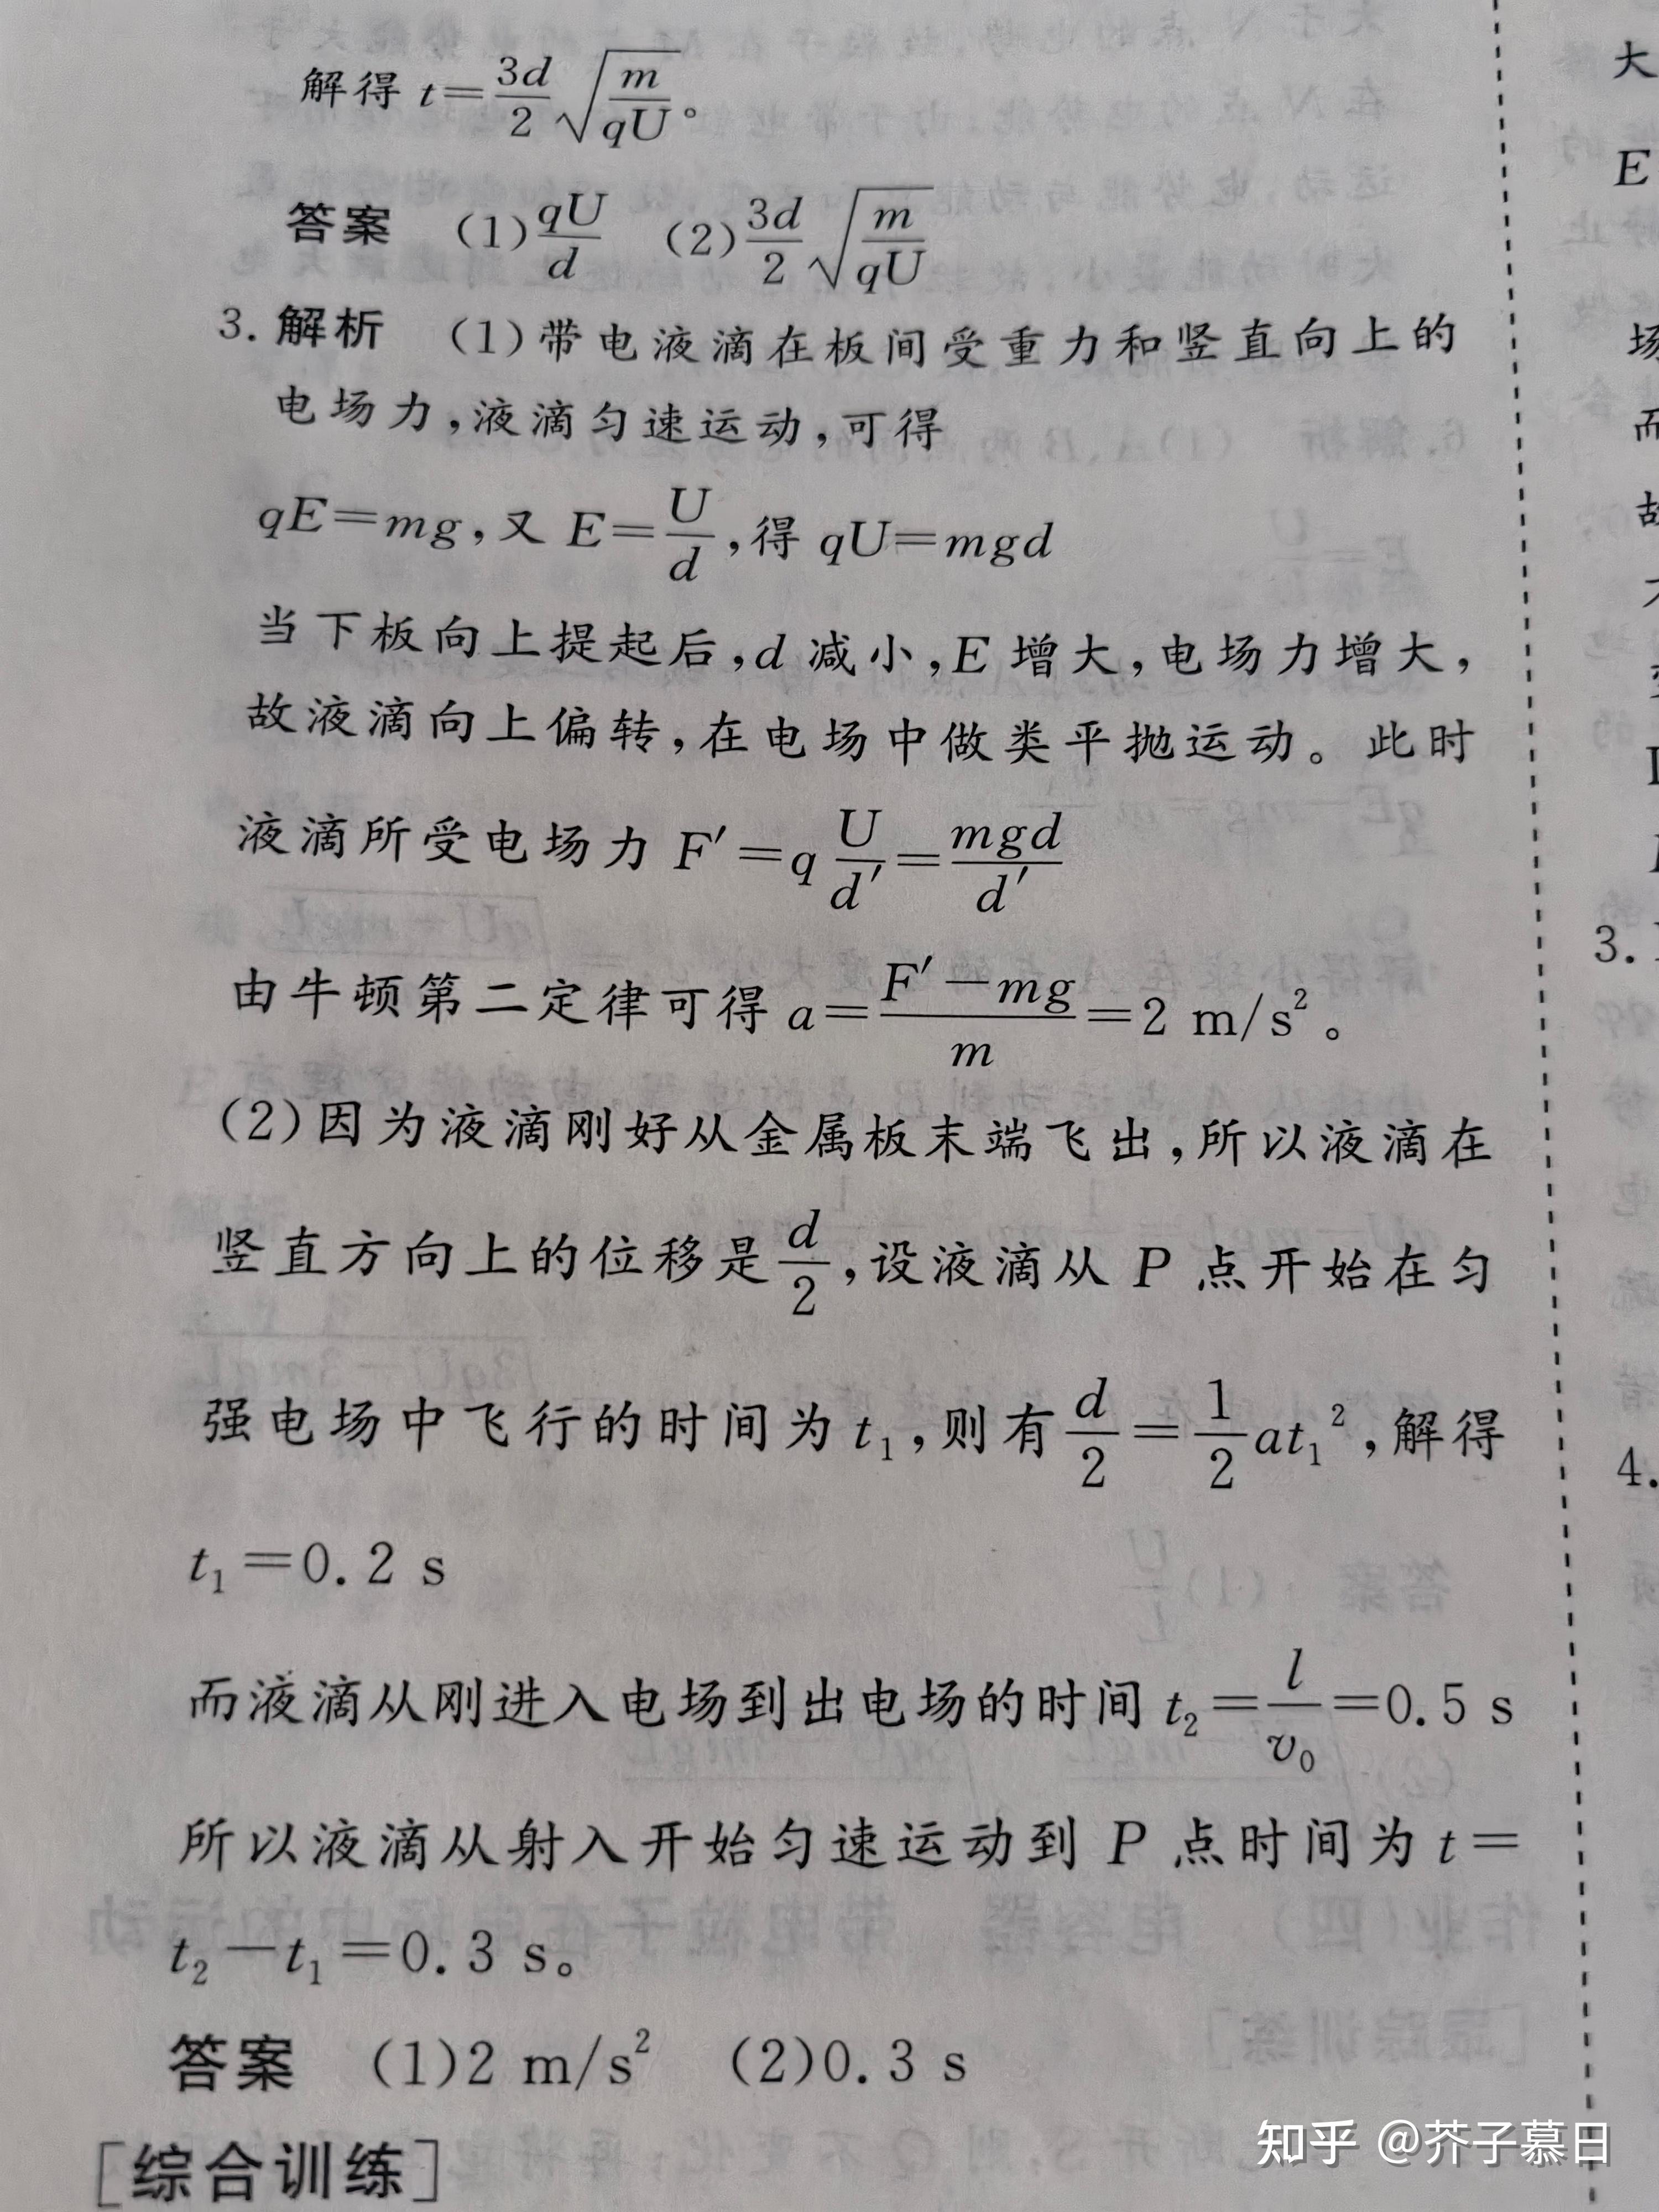 解得 t=3d/2√(m/qU)。
答案 (1)qU/d (2)3d/2√(m/qU)
3. 解析 (1)带电液滴在板间受重力和竖直向上的
电场力,液滴匀速运动,可得
qE=mg,又 E=U/d,得 qU=mgd
当下板向上提起后,d 减小,E 增大,电场力增大,
故液滴向上偏转,在电场中做类平抛运动。此时
液滴所受电场力 F′=q U/d′=mgd/d′
由牛顿第二定律可得 a=(F′-mg)/m=2 m/s²。
(2)因为液滴刚好从金属板末端飞出,所以液滴在
竖直方向上的位移是d/2,设液滴从 P 点开始在匀
强电场中飞行的时间为 t₁,则有d/2=1/2at₁²,解得
t₁=0.2 s
而液滴从刚进入电场到出电场的时间 t₂=l/v₀=0.5 s
所以液滴从射入开始匀速运动到 P 点时间为 t=
t₂-t₁=0.3 s。
答案 (1)2 m/s² (2)0.3 s
[综合训练]
大
E
场
而
故
3.
4.
知乎 @芥子慕日